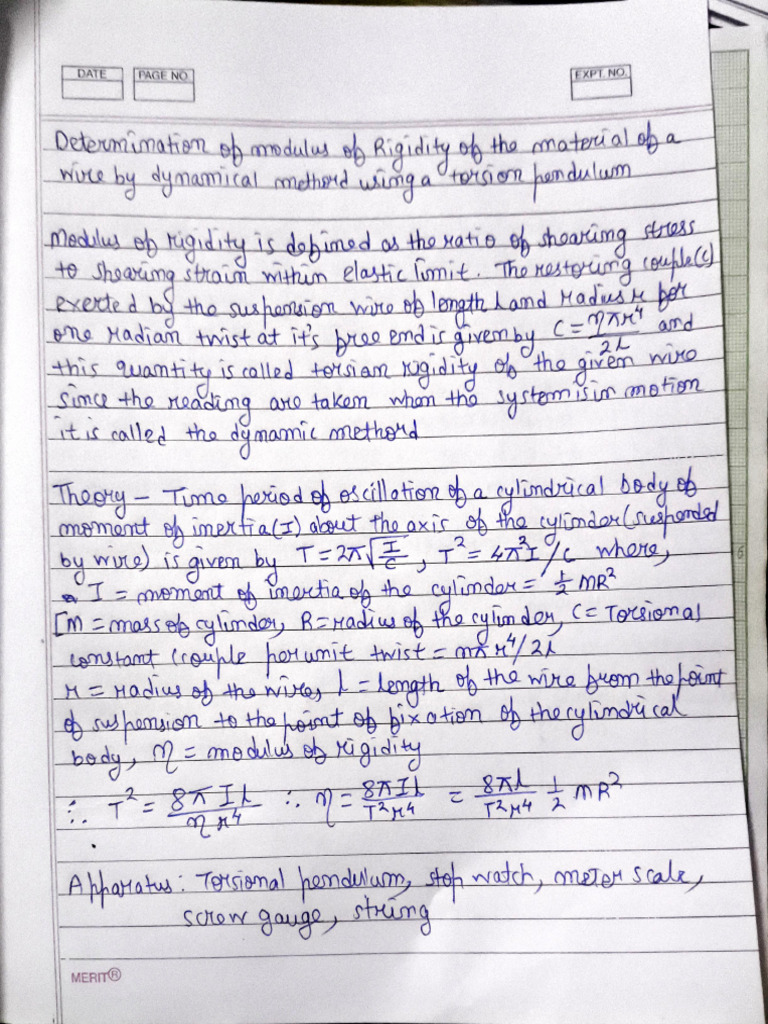 DATE
PAGE NO.
EXPT. NO.
Determination of modulus of Rigidity of the material of a
wire by dynamical methord using a torsion pendulum
Modulus of rigidity is defined as the ratio of shearing stress
to shearing strain within elastic limit. The restoring couple(c)
exerted by the suspension wire of length l and radius r for
one radian twist at it's free end is given by C = ηπr⁴/2l and
this quantity is called torsian rigidity of the given wire
since the reading are taken when the system is in motion
it is called the dynamic methord
Theory – Time period of oscillation of a cylindrical body of
moment of inertia(I) about the axis of the cylinder (suspended
by wire) is given by T = 2π√(I/c), T² = 4π²I/c where,
I = moment of inertia of the cylinder = ½ MR²
[M = mass of cylinder, R = radius of the cylinder, C = Torsional
constant (couple per unit twist = nπr⁴/2l
r = radius of the wire, l = length of the wire from the point
of suspension to the point of fixation of the cylindrical
body, η = modulus of rigidity
∴ T² = 8πIl/ηr⁴ ∴ η = 8πIl/T²r⁴ = 8πl/T²r⁴ ½ MR²
Apparatus : Torsional pendulum, stop watch, meter scale,
screw gauge, string
MERIT®